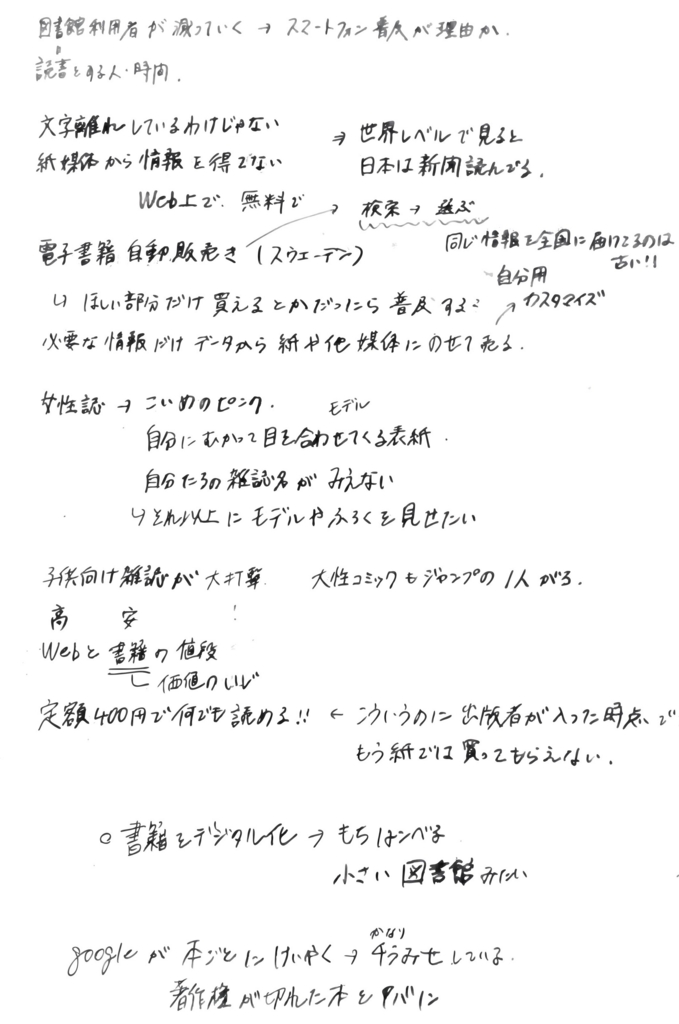 図書館利用者が減っていく → スマートフォン普及が理由か.
読書をする人・時間.
文字離れしているわけじゃない ⇒ 世界レベルで見ると
紙媒体から情報を得てない 日本は新聞読んでる.
Web上で、無料で → 検索 → 選ぶ
電子書籍 自動販売き (スウェーデン)
同じ情報を全国に届けてるのは
古い!!
自分用
カスタマイズ
↳ ほしい部分だけ買えるとかだったら普及する?
必要な情報だけデータから紙や他媒体にのせて売る.
女性誌 → こいめのピンク.
モデル
自分にむかって目を合わせてくる表紙.
自分たちの雑誌名がみえない
↳ それ以上にモデルやふろくを見せたい
子供向け雑誌が大打撃 コミックもジャンプの1人がち.
高 安
Webと書籍の値段
価値のいじ
定額400円で何でも読める!! ← こういうのに出版者が入った時点で
もう紙では買ってもらえない.
○ 書籍をデジタル化 → もちはこべる
小さい図書館みたい
googleが本ごとにけいやく →
かなり
している.
著作権が切れた本を